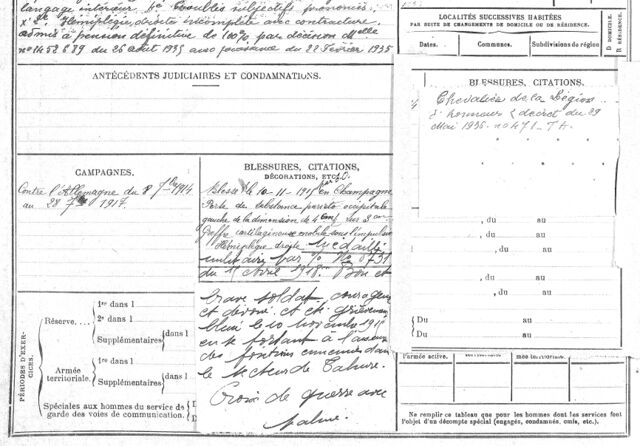 langage intérieur, 6° troubles subjectifs prononcés,
Hémiplégie droite incomplète avec contracture
admis à pension définitive de 100% par décision Melle
du 26 août 1935 avec jouissance du 22 Février 1935
ANTÉCÉDENTS JUDICIAIRES ET CONDAMNATIONS.
CAMPAGNES.
Contre l'Allemagne du 8 7bre 1914
au 28 1917
BLESSURES, CITATIONS,
DÉCORATIONS, ETC.
Blessé le 10-11-1915 en Champagne
Perte de substance pariéto occipitale
gauche de la dimension de 4 cm sur 3 cm
Greffe cartilagineuse mobile sous l'impulsion
Hémiplégie droite Médaille
militaire par
du 11 Avril 1918. Bon et
brave soldat, courageux
et dévoué. a été grièvement
blessé le 10 novembre 1915
en se portant à l'assaut
des positions ennemies dans
le secteur de Tahure.
Croix de guerre avec
palme.
PÉRIODES D'EXERCICES.
Réserve
1re dans l
2e dans l
Supplémentaires dans l
Armée territoriale.
1re dans l
Supplémentaires dans l
Spéciales aux hommes du service de
garde des voies de communication.
LOCALITÉS SUCCESSIVES HABITÉES
PAR SUITE DE CHANGEMENTS DE DOMICILE OU DE RÉSIDENCE.
Dates. Communes. Subdivisions de région
D. DOMICILE.
R. RÉSIDENCE.
BLESSURES, CITATIONS.
Chevalier de la Légion
d'honneur décret du 29
Mai 1936.
, du au
, du au
, du au
, du au
Du au
Du au
l'armée active.
Ne remplir ce tableau que pour les hommes dont les services font
l'objet d'un décompte spécial (engagés, condamnés, omis, etc.).